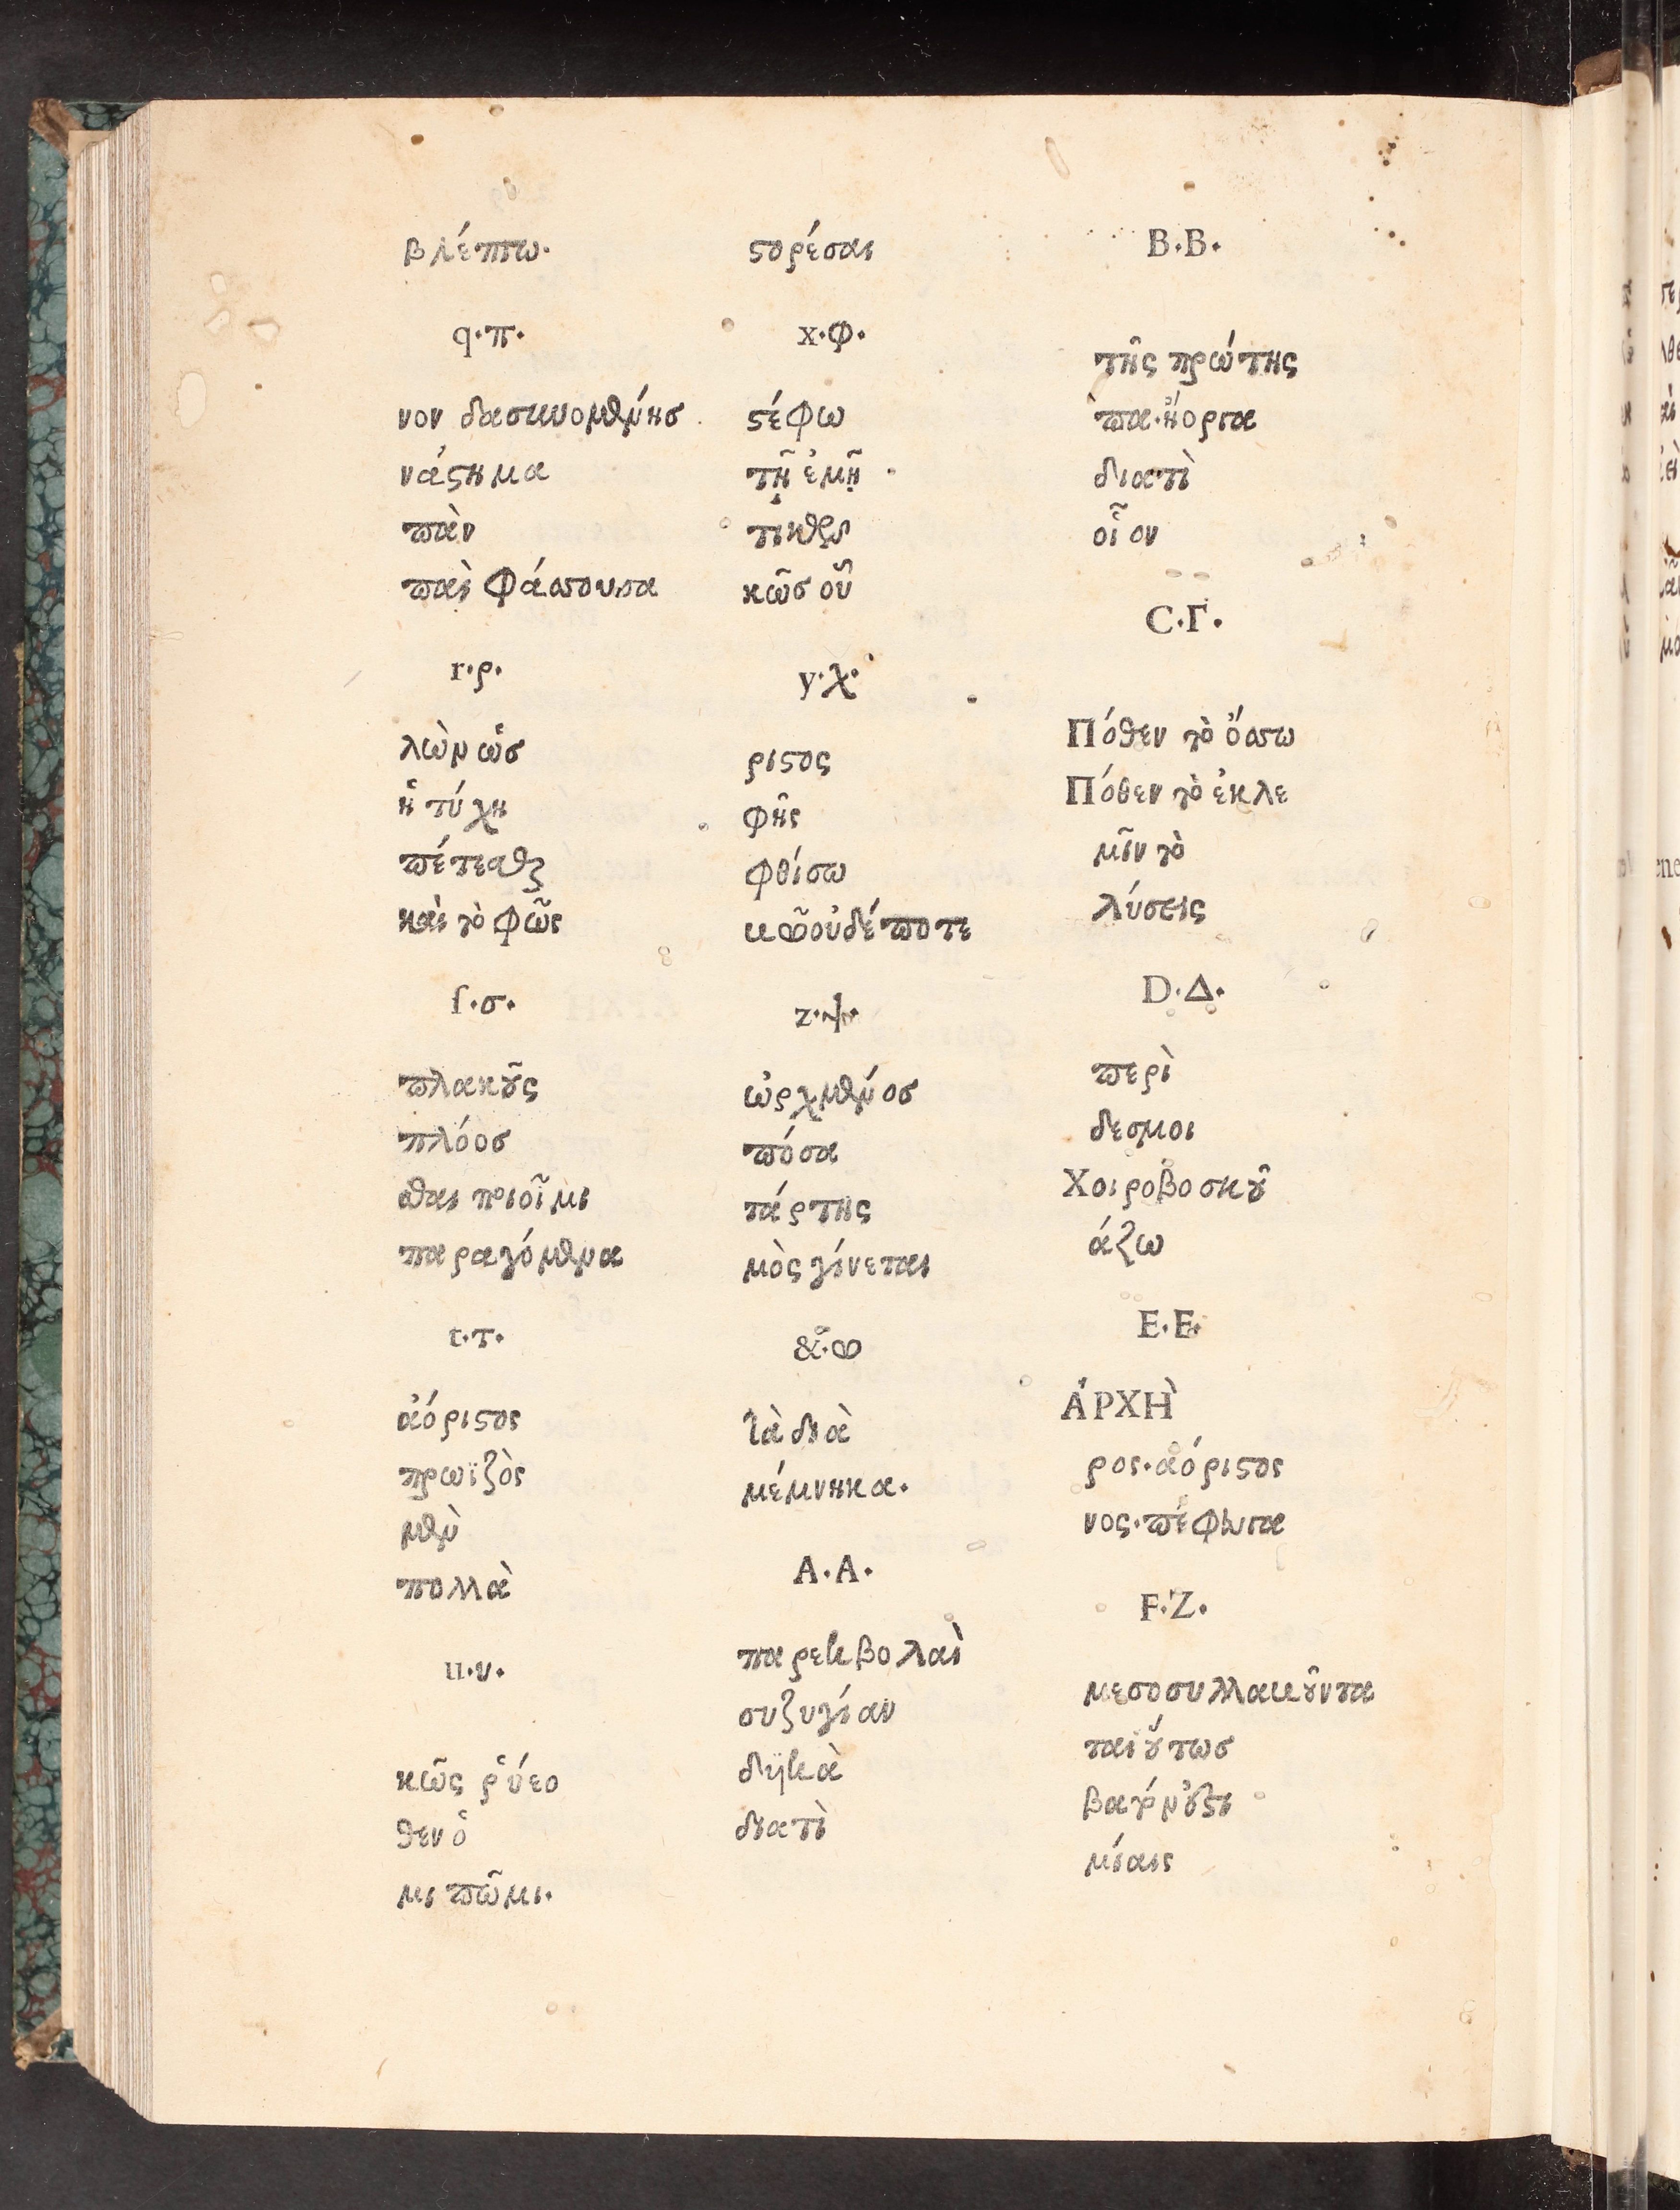 βλέπω.
q.π.
νον δασυνομένης
νάστημα
πὰν
παὶ φάσπουσα
r.ρ.
λὼν ὡσ
ἡ τύχη
πέτεσθ
καὶ τὸ φῶς
ſ.σ.
πλακοῦς
πλόοσ
σθαι ποιοῖμι
παραγόμενα
t.τ.
ἀόριστος
πρωϊζὸς
μὲν
πολλὰ
u.υ.
κῶς ῥύεο
θεν ὁ
μι πῶμι.
στορέσαι
x.φ.
στέφω
τῇ ἐμῇ
κῶσ οὗ
y.χ.
ριστος
φῆς
φθίσω
οὐδέποτε
z.ψ.
ὠρχμένοσ
πόσα
τάρτης
μὸς γίνεται
&.ω
ἰὰ διὰ
μέμνηκα.
A.Α.
παρεκβολαὶ
συζυγίαν
διὰτὶ
B.Β.
τῆς πρώτης
διατὶ
οἷον
C.Γ.
Πόθεν τὸ ὄσπω
Πόθεν τὸ ἐκλε
μῖν τὸ
λύσεις
D.Δ.
περὶ
δεσμοι
Χοιροβοσκοῦ
άζω
E.Ε.
ἈΡΧῊ
ρος.ἀόριστος
νος.πέφηνα
F.Ζ.
μεσοσυλλακοῦντα
ταιούτωσ
μίαις